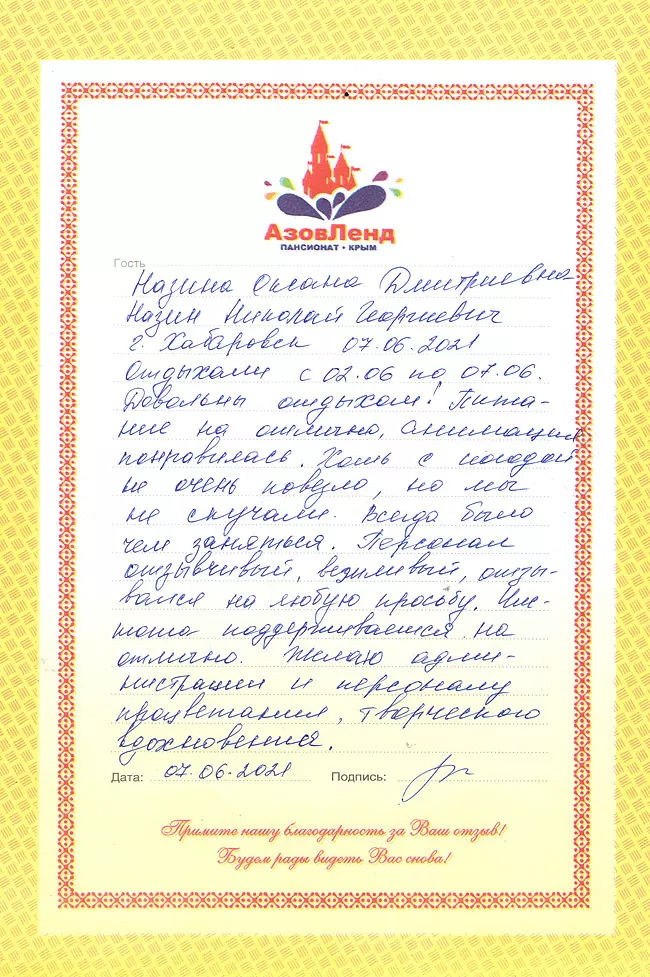 АзовЛенд
ПАНСИОНАТ • КРЫМ
Гость
Назина Оксана Дмитриевна
Назин Николай Георгиевич
г. Хабаровск 07.06.2021
Отдыхали с 02.06 по 07.06.
Довольны отдыхом! Пита-
ние на отлично, анимация
понравилась. Хоть с погодой
не очень повезло, но мы
не скучали. Всегда было
чем заняться. Персонал
отзывчивый, вежливый, отзы-
вался на любую просьбу. Чис-
тота поддерживается на
отлично. Желаю адми-
нистрации и персоналу
процветания, творческого
вдохновения.
Дата: 07.06.2021 Подпись:
Примите нашу благодарность за Ваш отзыв!
Будем рады видеть Вас снова!